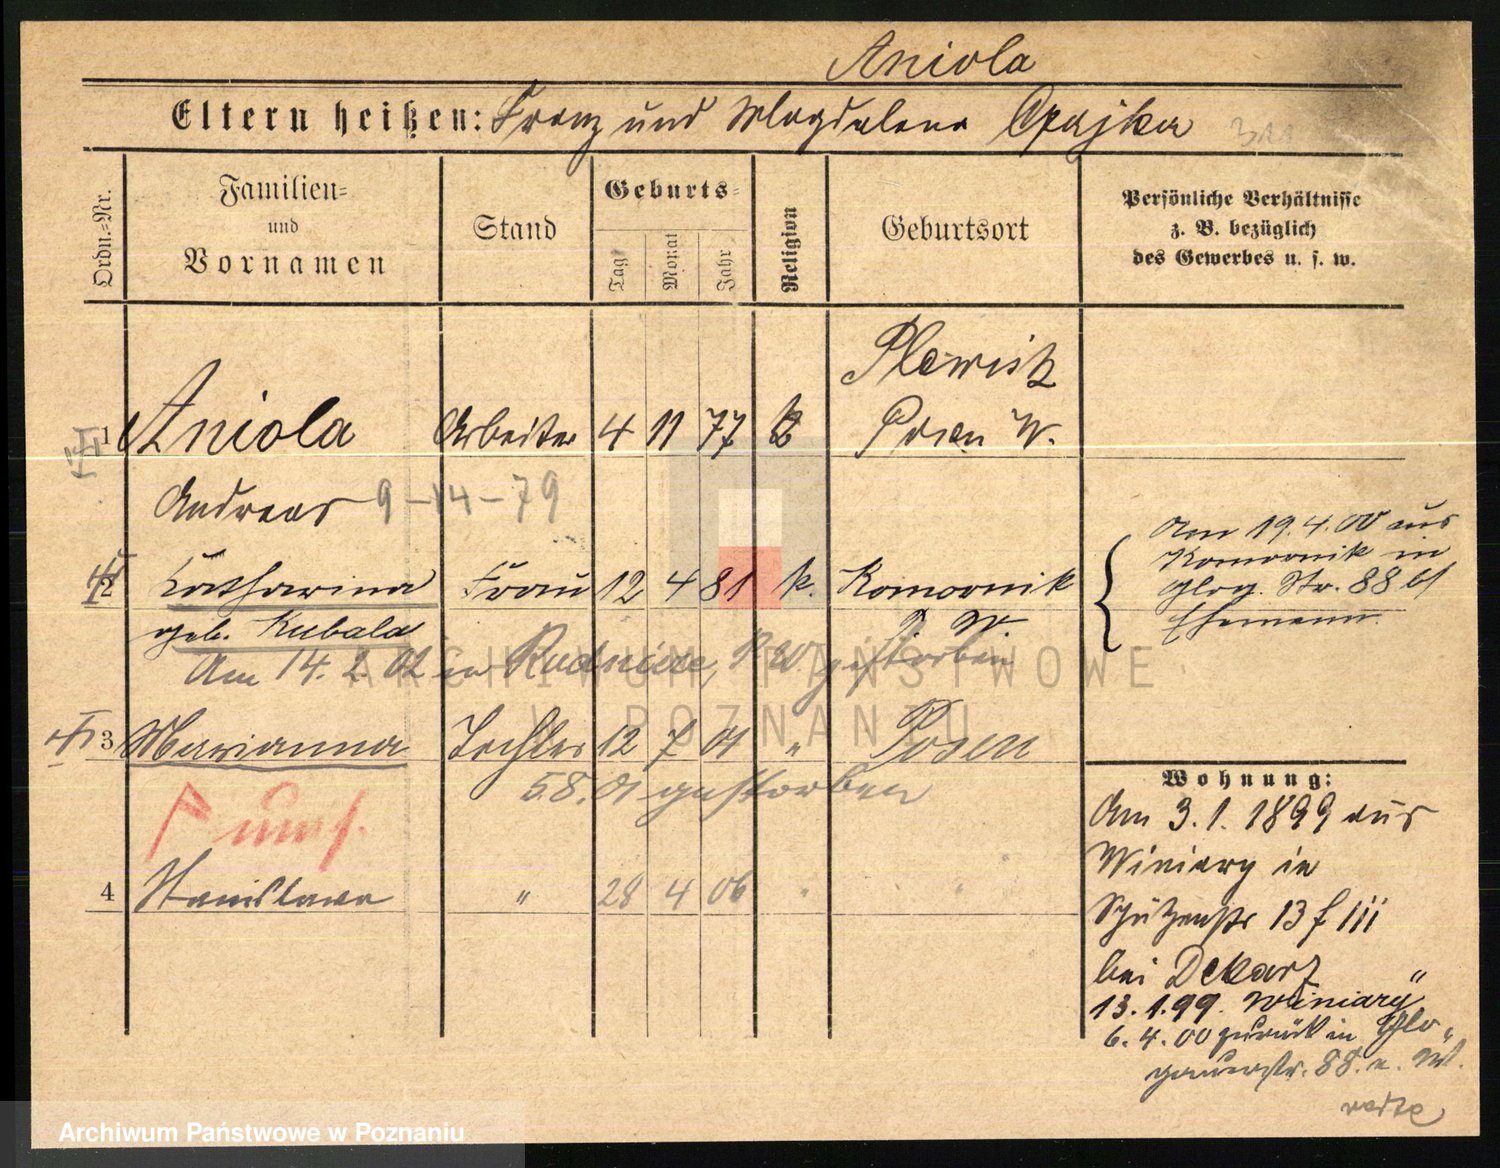 Aniola
Eltern heißen: Franz und Magdalena Czajka
Ordn.-Nr.
Familien-
und
Vornamen
Stand
Geburts-
Tag
Monat
Jahr
Religion
Geburtsort
Persönliche Verhältnisse
z. B. bezüglich
des Gewerbes u. s. w.
Plewisk
1 Aniola Arbeiter 4 11 77 k Posen W.
Andreas 9-14-79
2 Katharina Frau 12 4 81 k. Komornik
geb. Kubala P. W.
Am 14. 2. 02 in P. W. gestorben
Am 19.4.00 aus
Komornik in
Glog. Str. 88 bei
Ehemann.
3 Marianna Tochter 12 7 01 " Posen
5.8.01 gestorben
4 Stanislawa " 28 4 06 " "
Wohnung:
Am 3.1.1899 aus
Winiary in
Schützenstr 13 f III
bei
13.1.99. Winiary
6.4.00 zurück in Glo-
gauerstr. 88. a. W.
ARCHIWUM PAŃSTWOWE
W POZNANIU
Archiwum Państwowe w Poznaniu